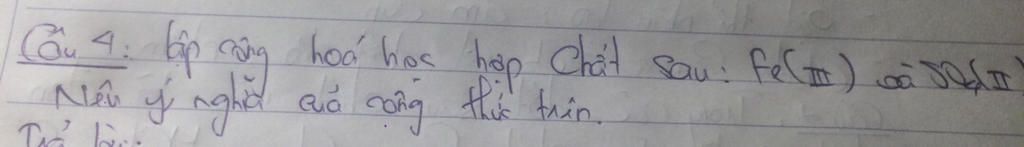 Câu 4: lập công hoá học hợp Chất sau: Fe(III) và SO₄(II)
Nêu ý nghĩa cuả công thức trên.
Trả lời: